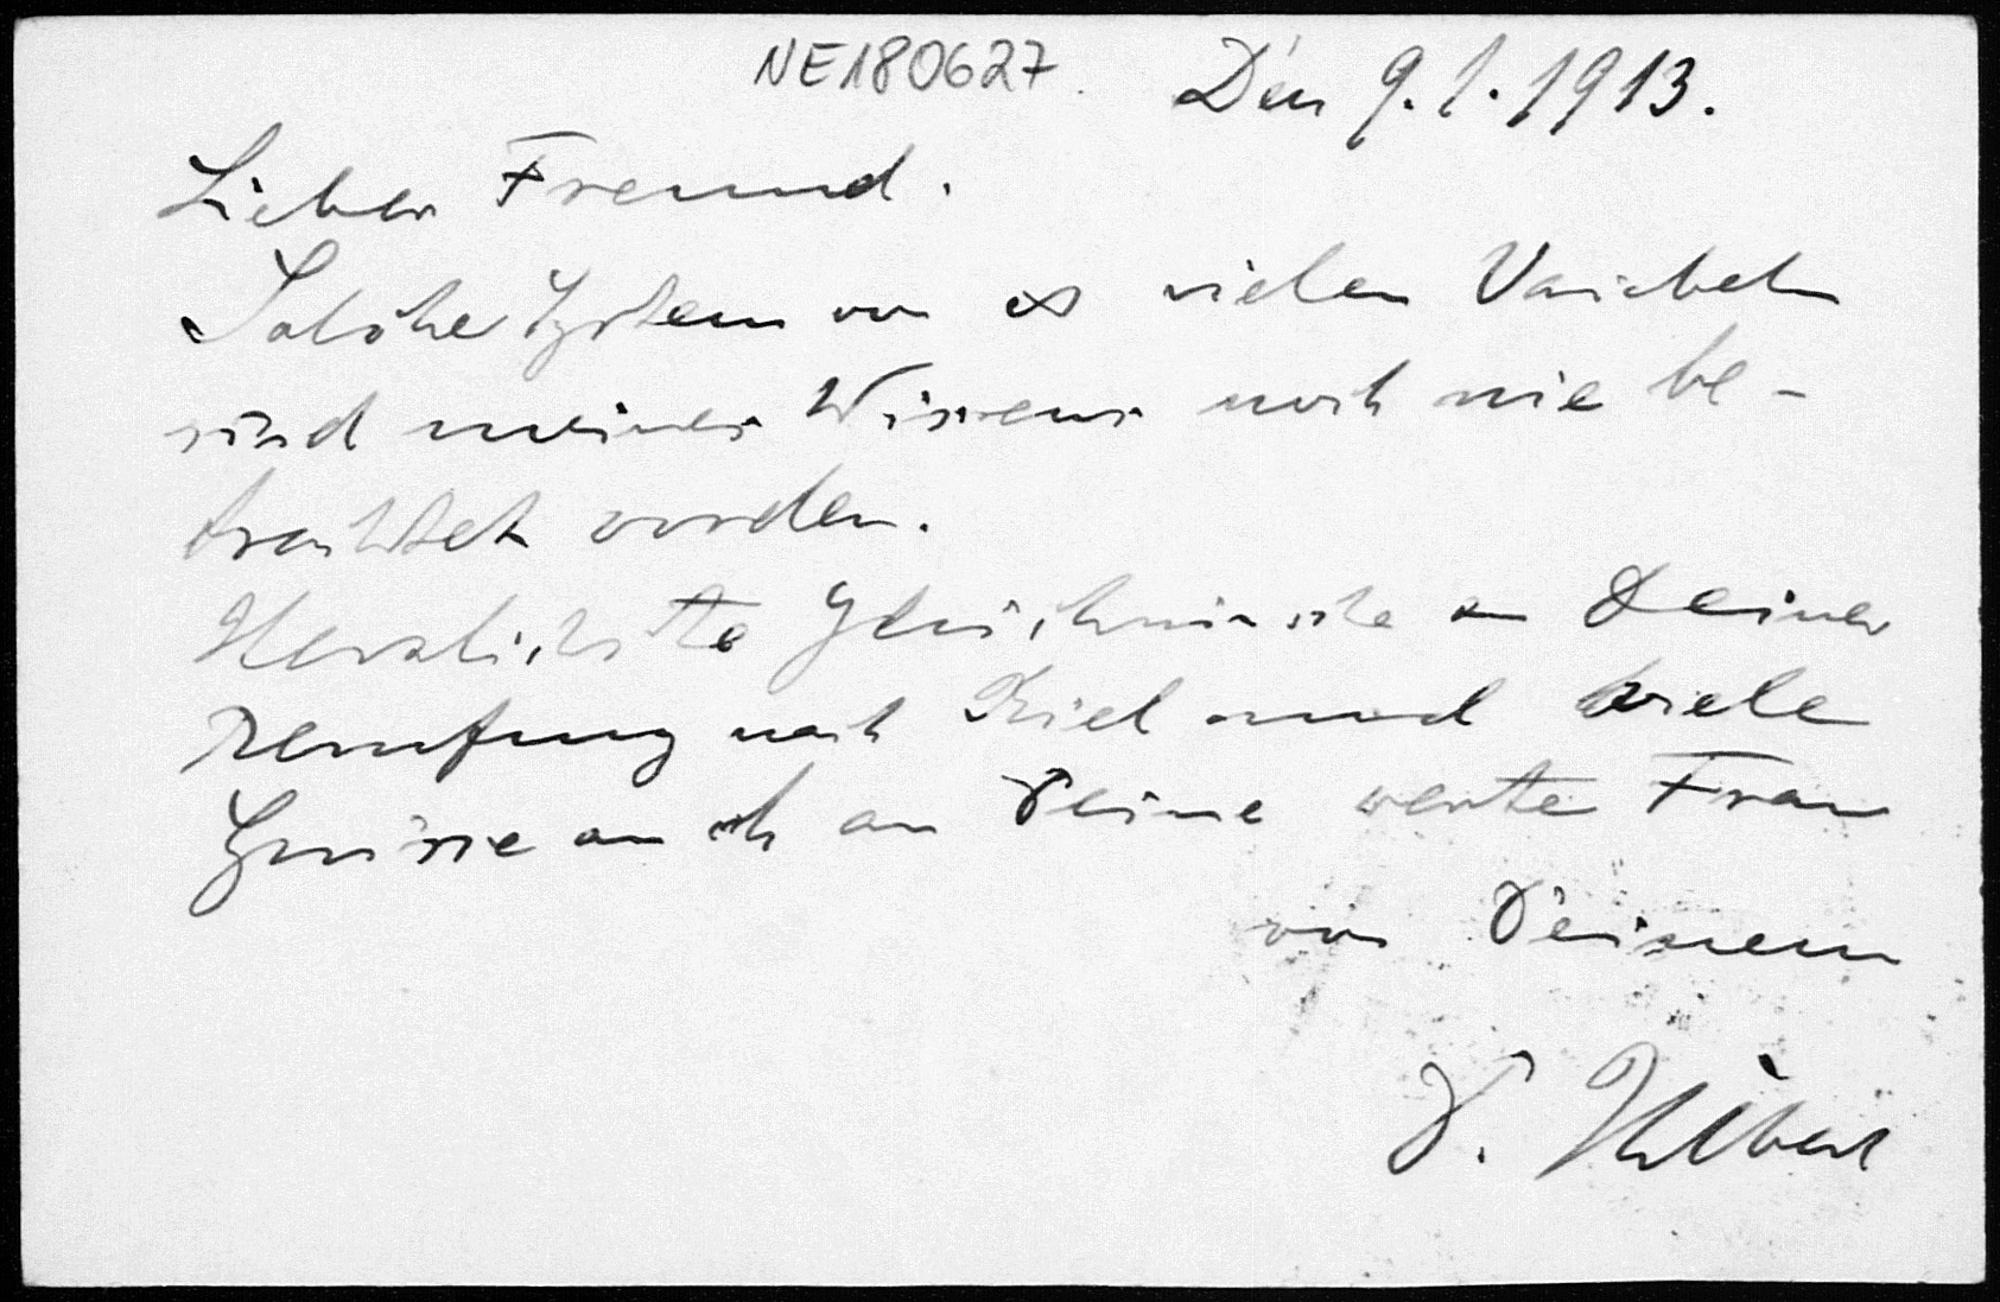 NE180627. Den 9.1.1913.
Lieber Freund.
Solche Systeme von ∞ vielen Variabeln
sind meines Wissens noch nie be-
trachtet worden.
Herzlichste Glückwünsche zu Deiner
Berufung nach Kiel und viele
Grüsse auch an Deine werte Frau
von Deinem
D. Hilbert